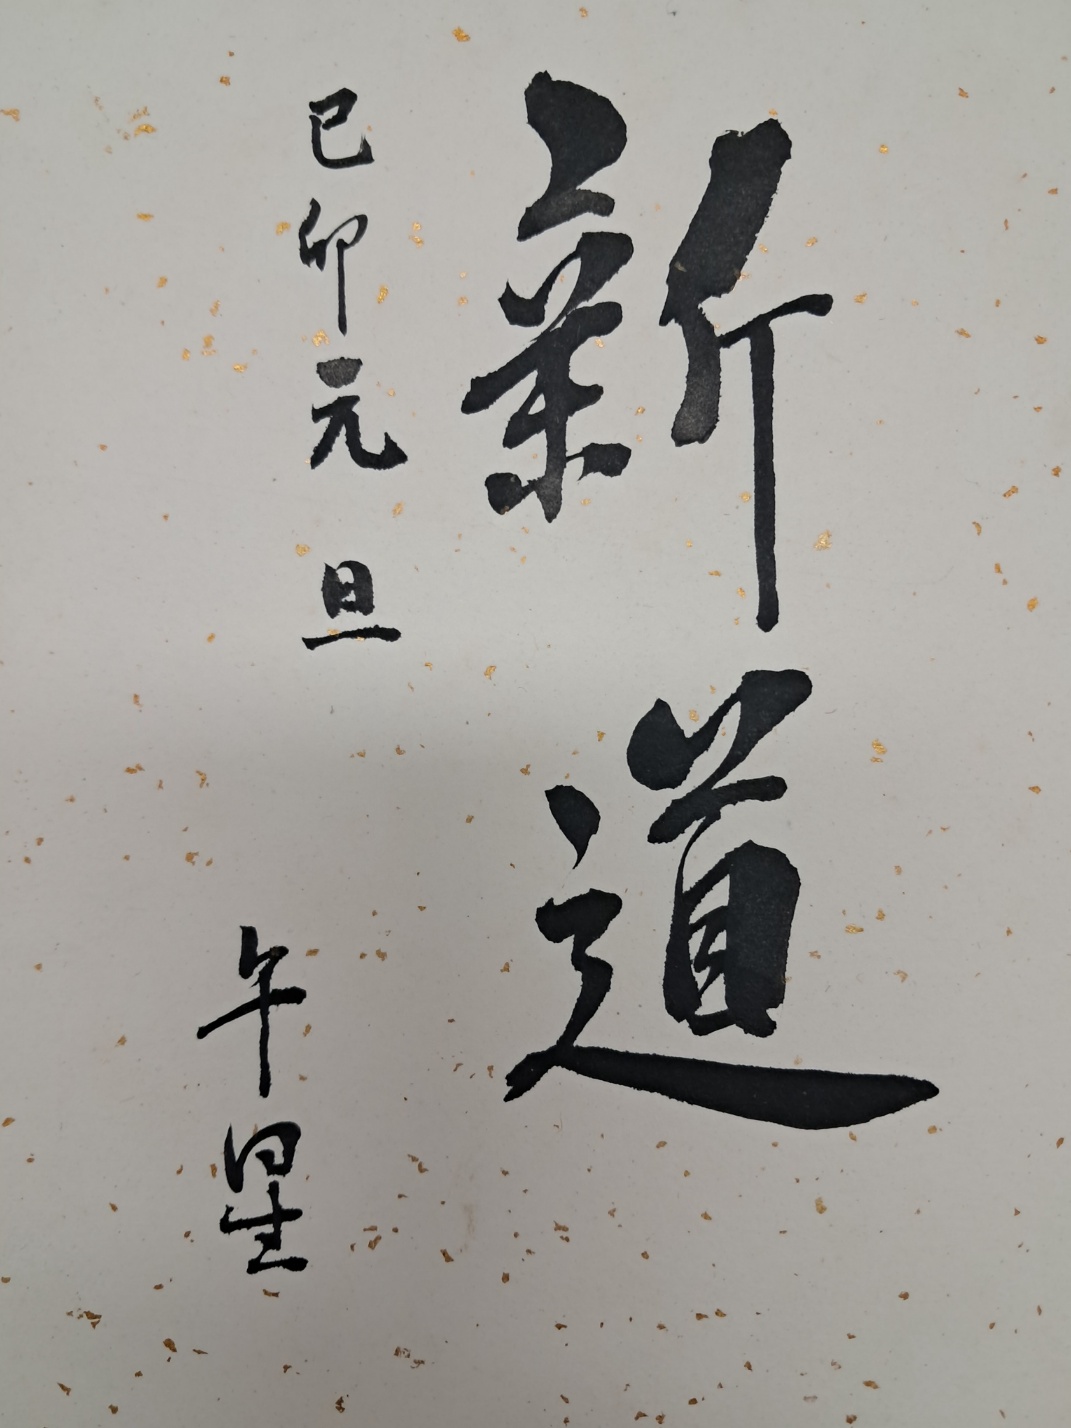 新道
己卯元旦
午星